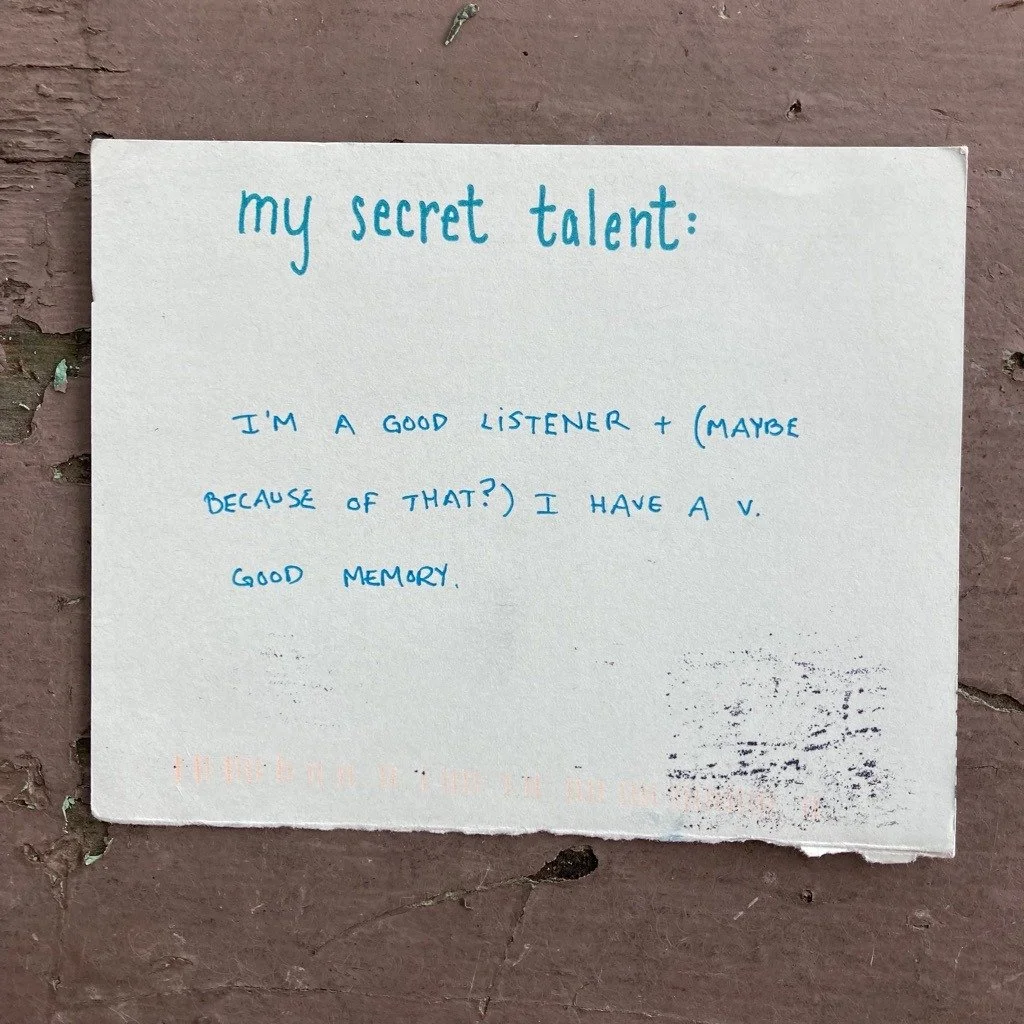 my secret talent:
I'M A GOOD LISTENER + (MAYBE
BECAUSE OF THAT?) I HAVE A V.
GOOD MEMORY.